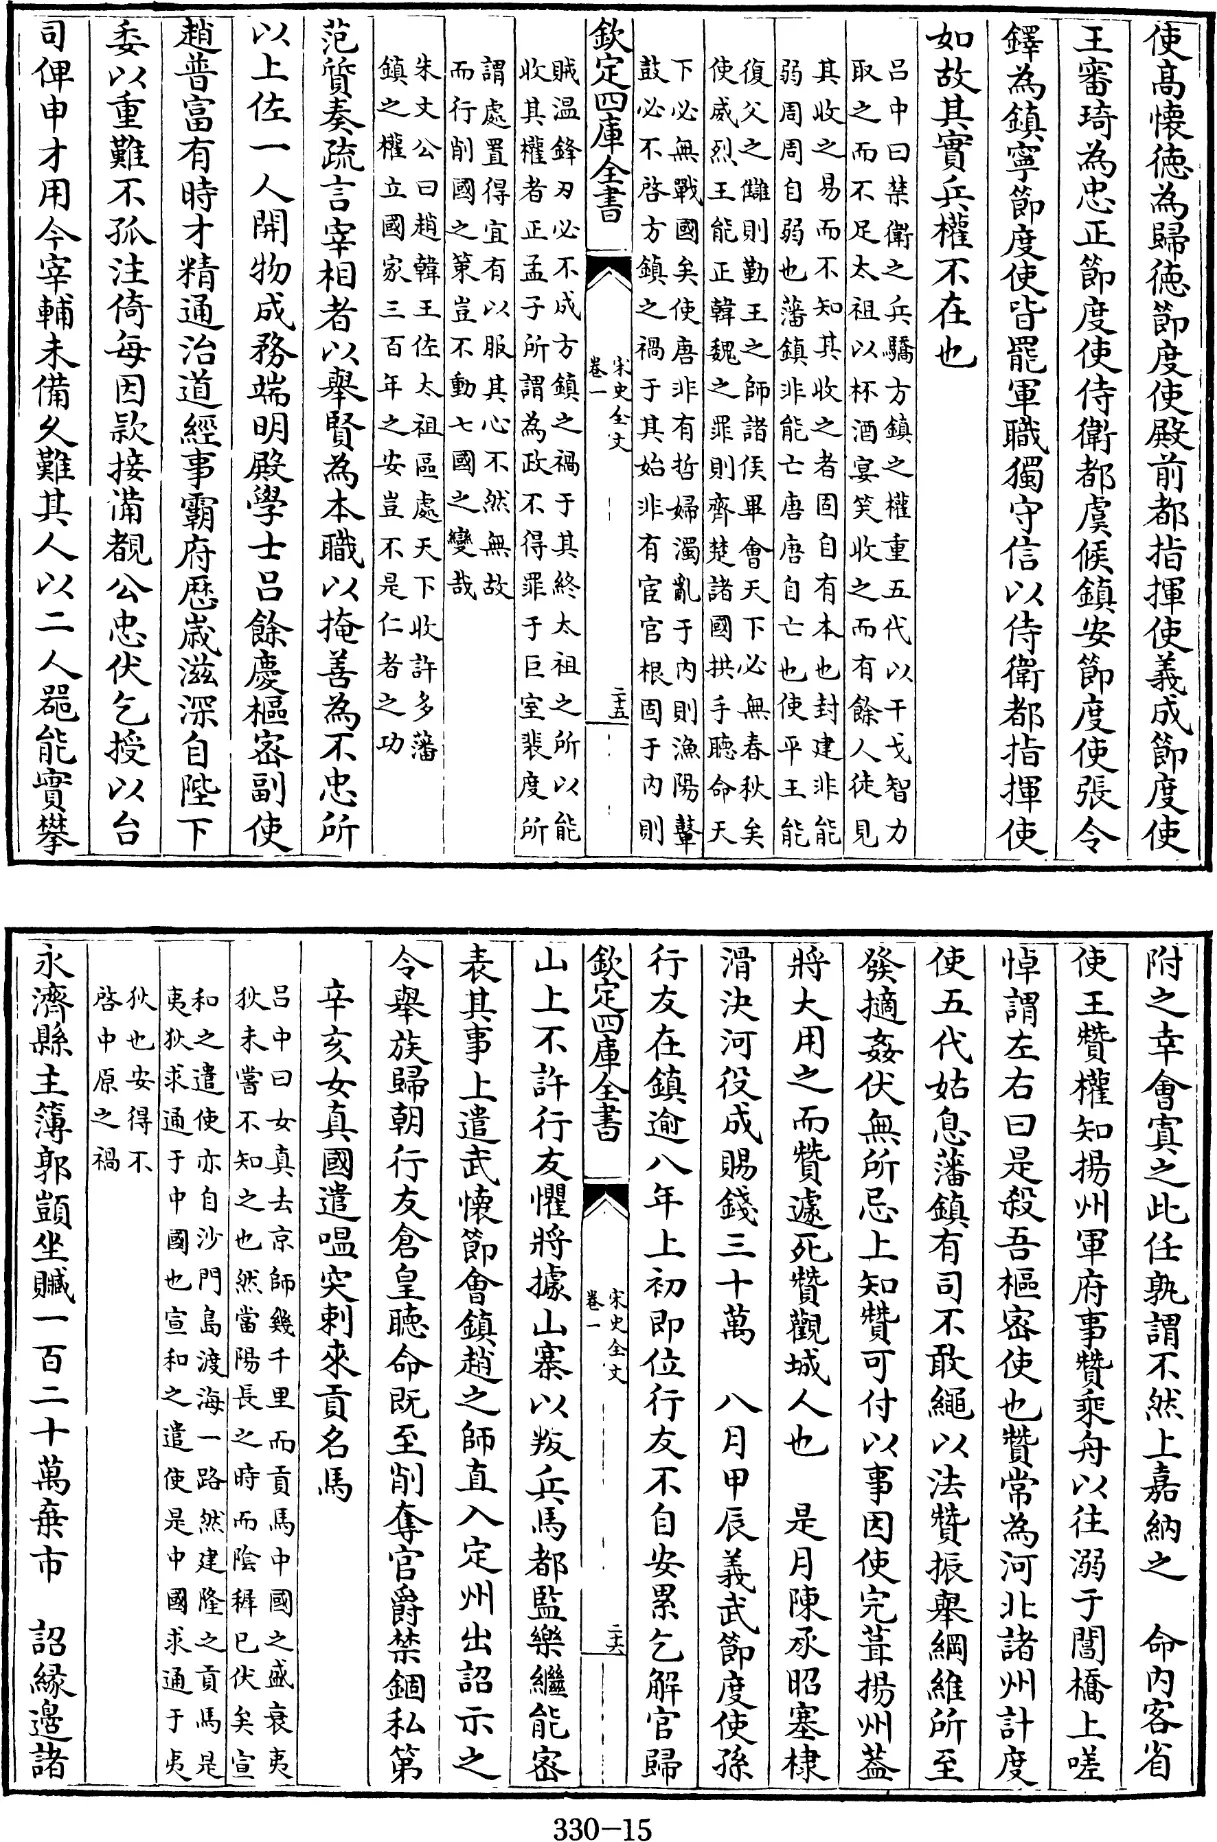 使髙懐徳為歸徳節度使殿前都指揮使義成節度使
王審琦為忠正節度使侍衛都虞候鎮安節度使張令
鐸為鎮寧節度使皆罷軍職獨守信以侍衛都指揮使
如故其實兵權不在也
吕中曰禁衛之兵驕方鎮之權重五代以干戈智力
取之而不足太祖以杯酒宴笑收之而有餘人徒見
其收之易而不知其收之者固自有本也封建非能
弱周周自弱也藩鎮非能亡唐唐自亡也使平王能
復父之讎則勤王之師諸侯畢會天下必無春秋矣
使威烈王能正韓魏之罪則齊楚諸國拱手聽命天
下必無戰國矣使唐非有哲婦濁亂于内則漁陽鼙
鼓必不啓方鎮之禍于其始非有宦官根固于内則
欽定四庫全書
宋史全文
卷一
二十五
賊温鋒刃必不成方鎮之禍于其終太祖之所以能
收其權者正孟子所謂為政不得罪于巨室裴度所
謂處置得宜有以服其心不然無故
而行削國之策豈不動七國之變哉
朱文公曰趙韓王佐太祖區處天下收許多藩
鎮之權立國家三百年之安豈不是仁者之功
范質奏疏言宰相者以舉賢為本職以掩善為不忠所
以上佐一人開物成務端明殿學士吕餘慶樞宻副使
趙普富有時才精通治道經事霸府歴嵗滋深自陛下
委以重難不孤注倚每因款接備覩公忠伏乞授以台
司俾申才用今宰輔未備久難其人以二人器能實攀
附之幸會寘之此任孰謂不然上嘉納之　命内客省
使王贊權知揚州軍府事贊乗舟以往溺于閶橋上嗟
悼謂左右曰是殺吾樞宻使也贊常為河北諸州計度
使五代姑息藩鎮有司不敢繩以法贊振舉綱維所至
發擿姦伏無所忌上知贊可付以事因使完葺揚州蓋
將大用之而贊遽死贊觀城人也　是月陳承昭塞棣
滑決河役成賜錢三十萬　八月甲辰義武節度使孫
行友在鎮逾八年上初即位行友不自安累乞解官歸
欽定四庫全書
宋史全文
卷一
二十六
山上不許行友懼將據山寨以叛兵馬都監樂繼能宻
表其事上遣武懐節會鎮趙之師直入定州出詔示之
令舉族歸朝行友倉皇聽命既至削奪官爵禁錮私第
辛亥女真國遣嗢突剌來貢名馬
吕中曰女真去京師幾千里而貢馬中國之盛衰夷
狄未嘗不知之也然當陽長之時而陰稺已伏矣宣
和之遣使亦自沙門島渡海一路然建隆之貢馬是
夷狄求通于中國也宣和之遣使是中國求通于夷
狄也安得不
啓中原之禍
永濟縣主簿郭顗坐贓一百二十萬棄市　詔縁邉諸
330-15